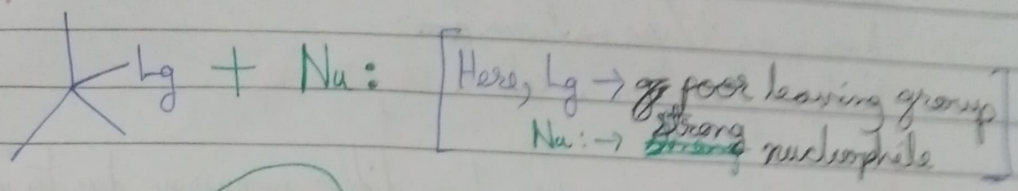 Lg + Nu: [Here, Lg → poor leaving group
Nu: → strong nucleophile]